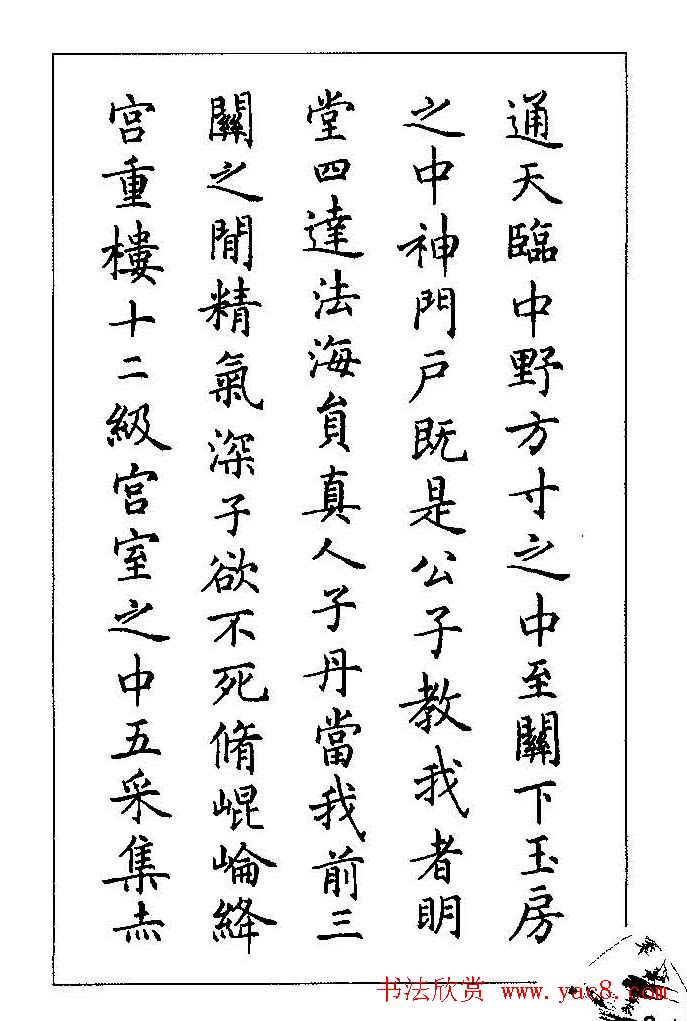 通天臨中野方寸之中至關下玉房
之中神門户既是公子教我者明
堂四達法海員真人子丹當我前三
關之閒精氣深子欲不死脩崐崘絳
宫重樓十二級宫室之中五采集赤
书法欣赏 www.yac8.com